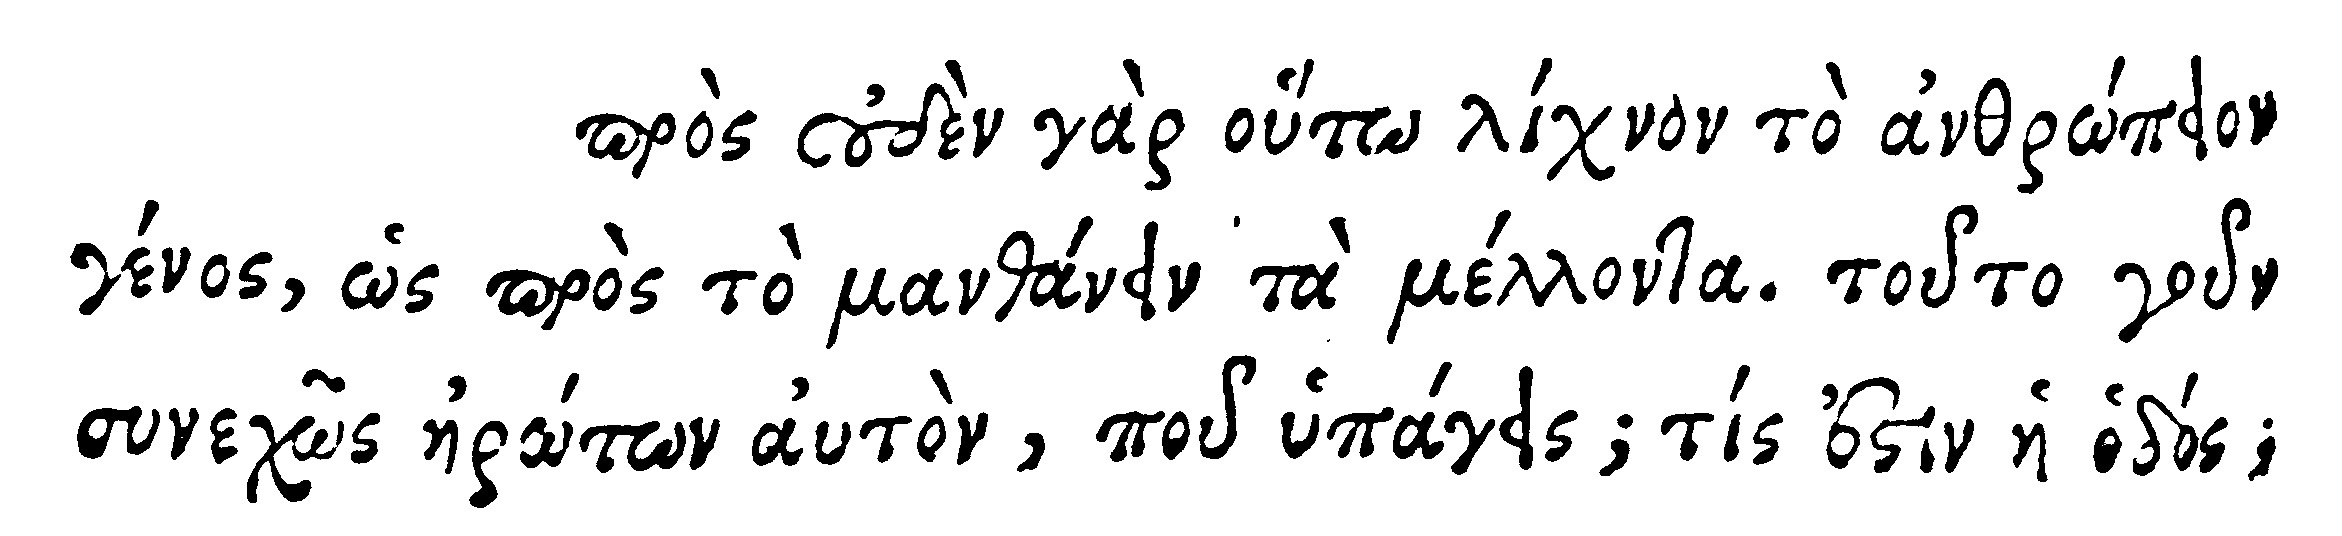 πρὸς οὐδὲν γὰρ οὕτω λίχνον τὸ ἀνθρώπειον
γένος, ὡς πρὸς τὸ μανθάνειν τὰ μέλλοντα. τοῦτο γοῦν
συνεχῶς ἠρώτων αὐτὸν, ποῦ ὑπάγεις; τίς ἐστιν ἡ ὁδός;